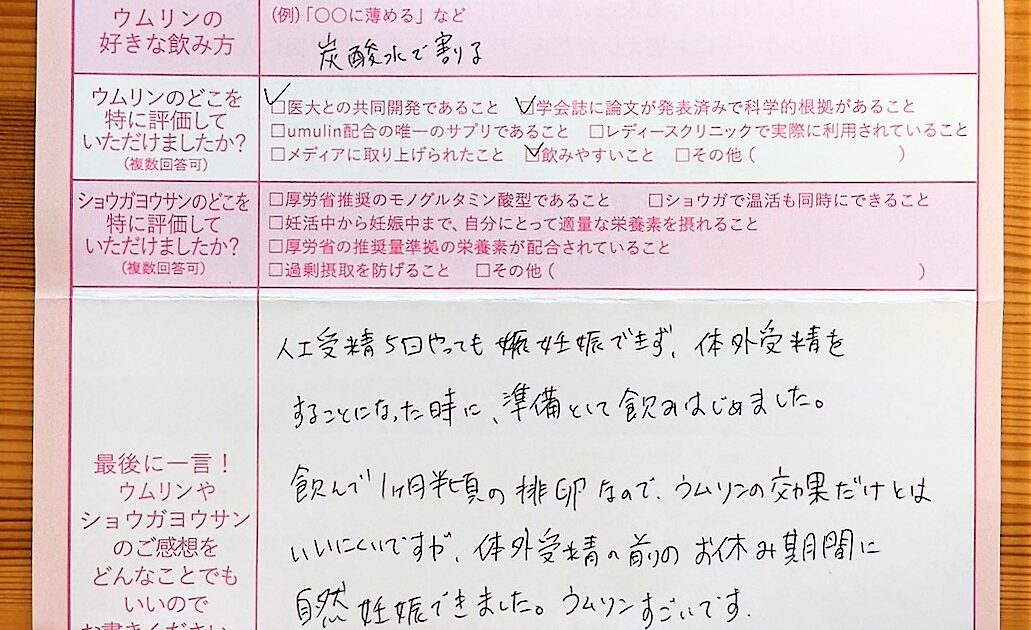 ウムリンの
好きな飲み方
（例）「○○に薄める」など
炭酸水で割る
ウムリンのどこを
特に評価して
いただけましたか？
（複数回答可）
☑医大との共同開発であること ☑学会誌に論文が発表済みで科学的根拠があること
□umulin配合の唯一のサプリであること □レディースクリニックで実際に利用されていること
□メディアに取り上げられたこと ☑飲みやすいこと □その他（ ）
ショウガヨウサンのどこを
特に評価して
いただけましたか？
（複数回答可）
□厚労省推奨のモノグルタミン酸型であること □ショウガで温活も同時にできること
□妊活中から妊娠中まで、自分にとって適量な栄養素を摂れること
□厚労省の推奨量準拠の栄養素が配合されていること
□過剰摂取を防げること □その他（ ）
最後に一言！
ウムリンや
ショウガヨウサン
のご感想を
どんなことでも
いいので
お書きください。
人工受精5回やっても妊娠できず、体外受精を
することになった時に、準備として飲みはじめました。
飲んで1ヶ月半頃の排卵なので、ウムリンの効果だけとは
いいにくいですが、体外受精の前のお休み期間に
自然妊娠できました。ウムリンすごいです.